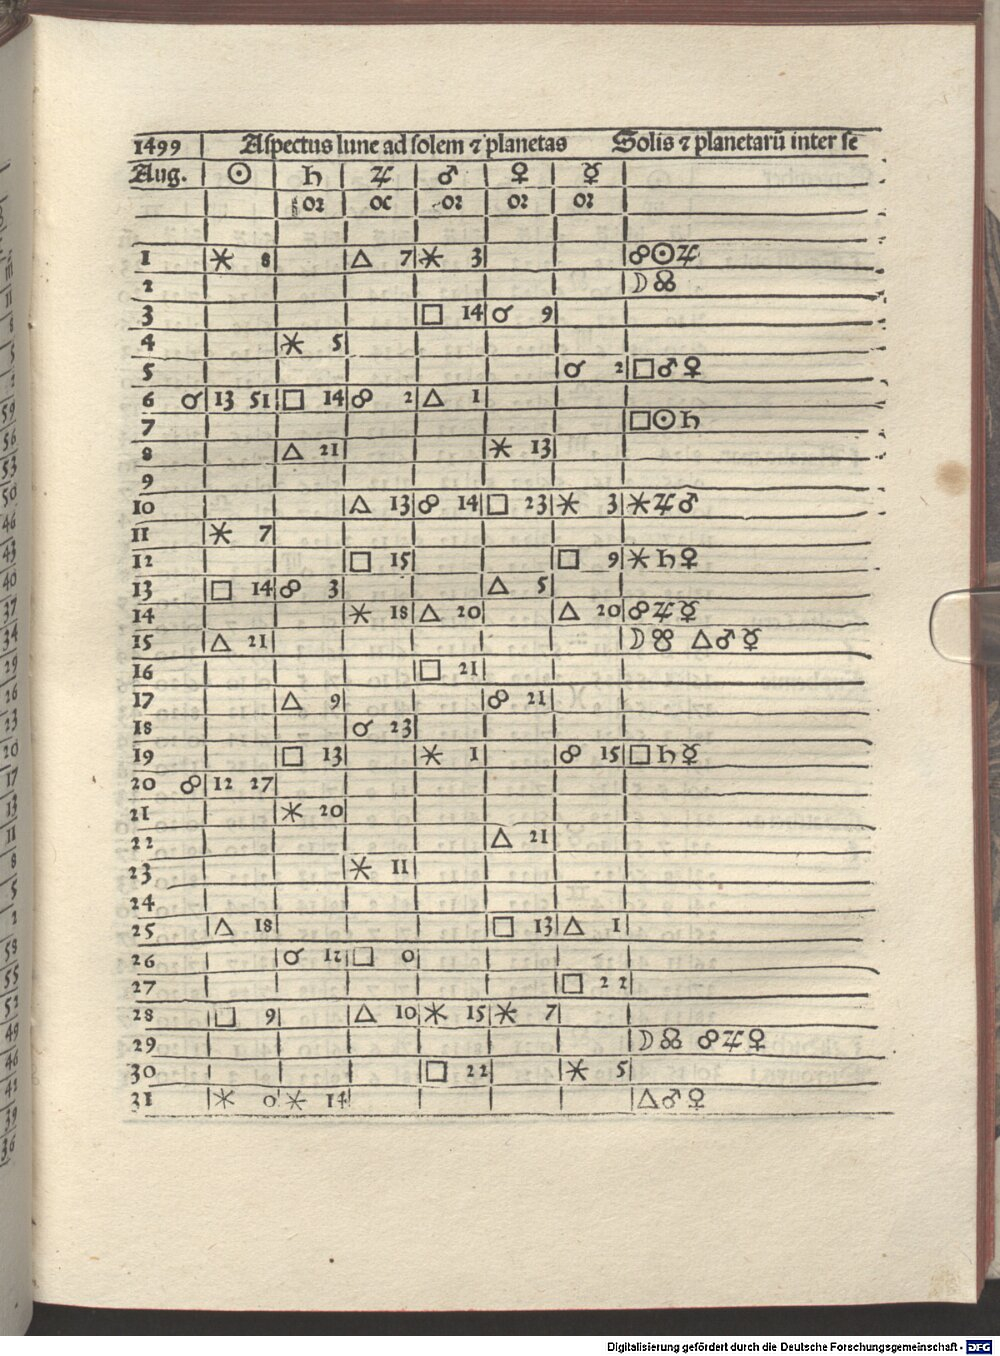 1499 Aspectus lune ad solem ⁊ planetas Solis ⁊ planetarū inter se
Aug. ☉ ♄ ♃ ♂ ♀ ☿
oꝛ oc oꝛ oꝛ oꝛ
1 ⚹ 8 △ 7 ⚹ 3 ☍☉♃
2 ☽☋
3 □ 14 ☌ 9
4 ⚹ 5
5 ☌ 2 □♂♀
6 ☌ 13 51 □ 14 ☍ 2 △ 1
7 □☉♄
8 △ 21 ⚹ 13
9
10 △ 13 ☍ 14 □ 23 ⚹ 3 ⚹♃♂
11 ⚹ 7
12 □ 15 □ 9 ⚹♄♀
13 □ 14 ☍ 3 △ 5
14 ⚹ 18 △ 20 △ 20 ☍♃☿
15 △ 21 ☽☋ △♂☿
16 □ 21
17 △ 9 ☍ 21
18 ☌ 23
19 □ 13 ⚹ 1 ☍ 15 □♄☿
20 ☍ 12 27
21 ⚹ 20
22 △ 21
23 ⚹ 11
24
25 △ 18 □ 13 △ 1
26 ☌ 12 □ 0
27 □ 22
28 □ 9 △ 10 ⚹ 15 ⚹ 7
29 ☽☊ ☍♃♀
30 □ 22 ⚹ 5
31 ⚹ 0 ⚹ 14 △♂♀
Digitalisierung gefördert durch die Deutsche Forschungsgemeinschaft - DFG